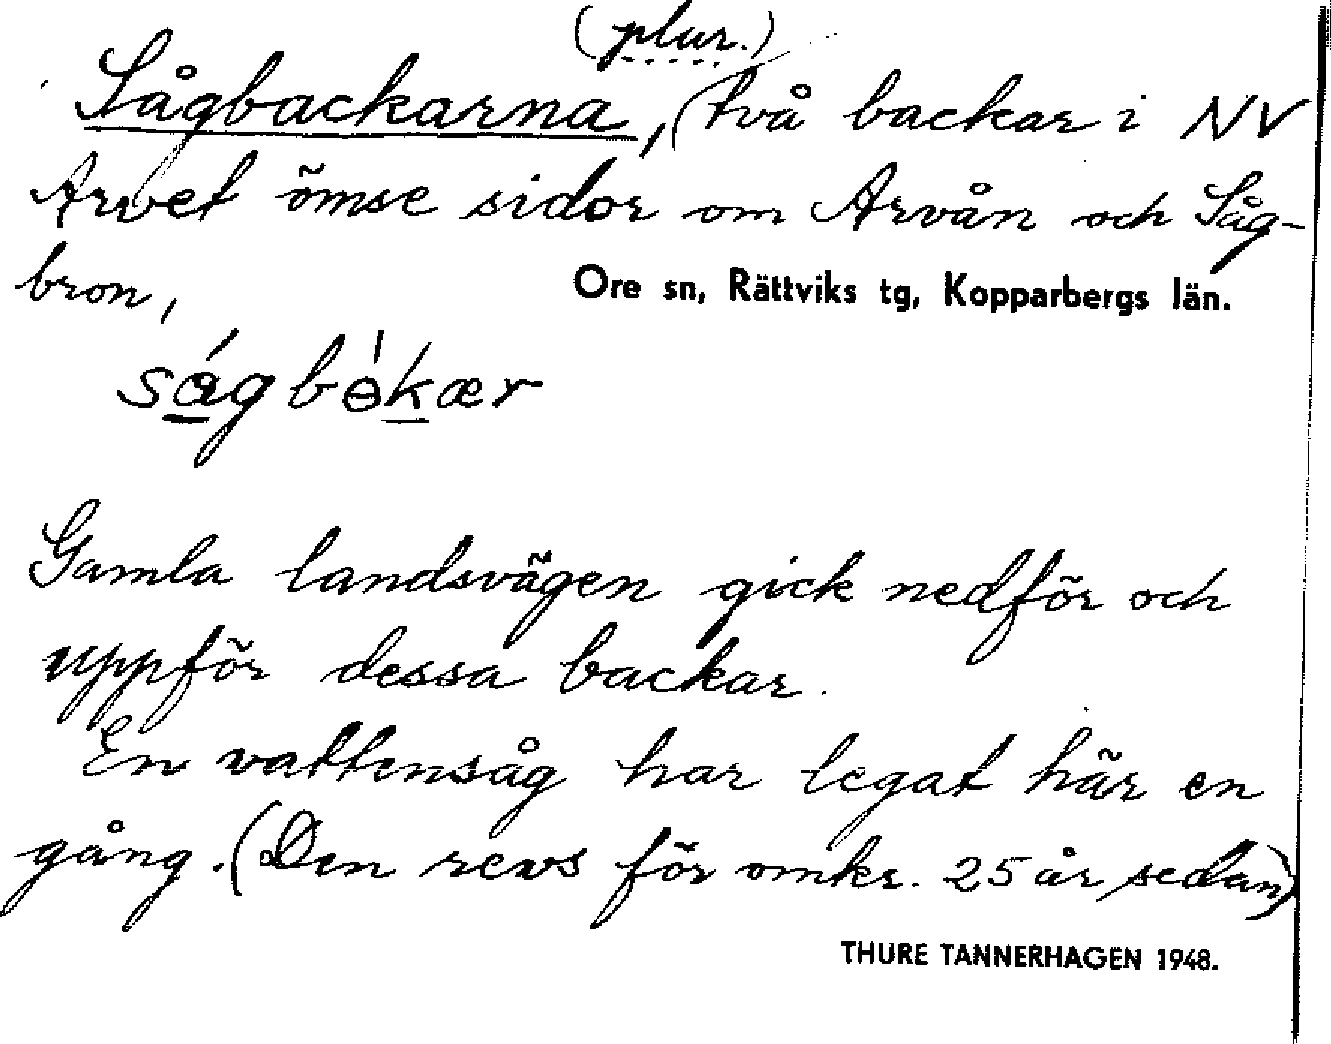 (plur.)
Sågbackarna, (två backar i NV
Arvet ömse sidor om Arvån och Såg-
bron,
Ore sn, Rättviks tg, Kopparbergs län.
ságbɵ́kær
Gamla landsvägen gick nedför och
uppför dessa backar.
En vattensåg har legat här en
gång. (Den revs för omkr. 25 år sedan)
THURE TANNERHAGEN 1948.